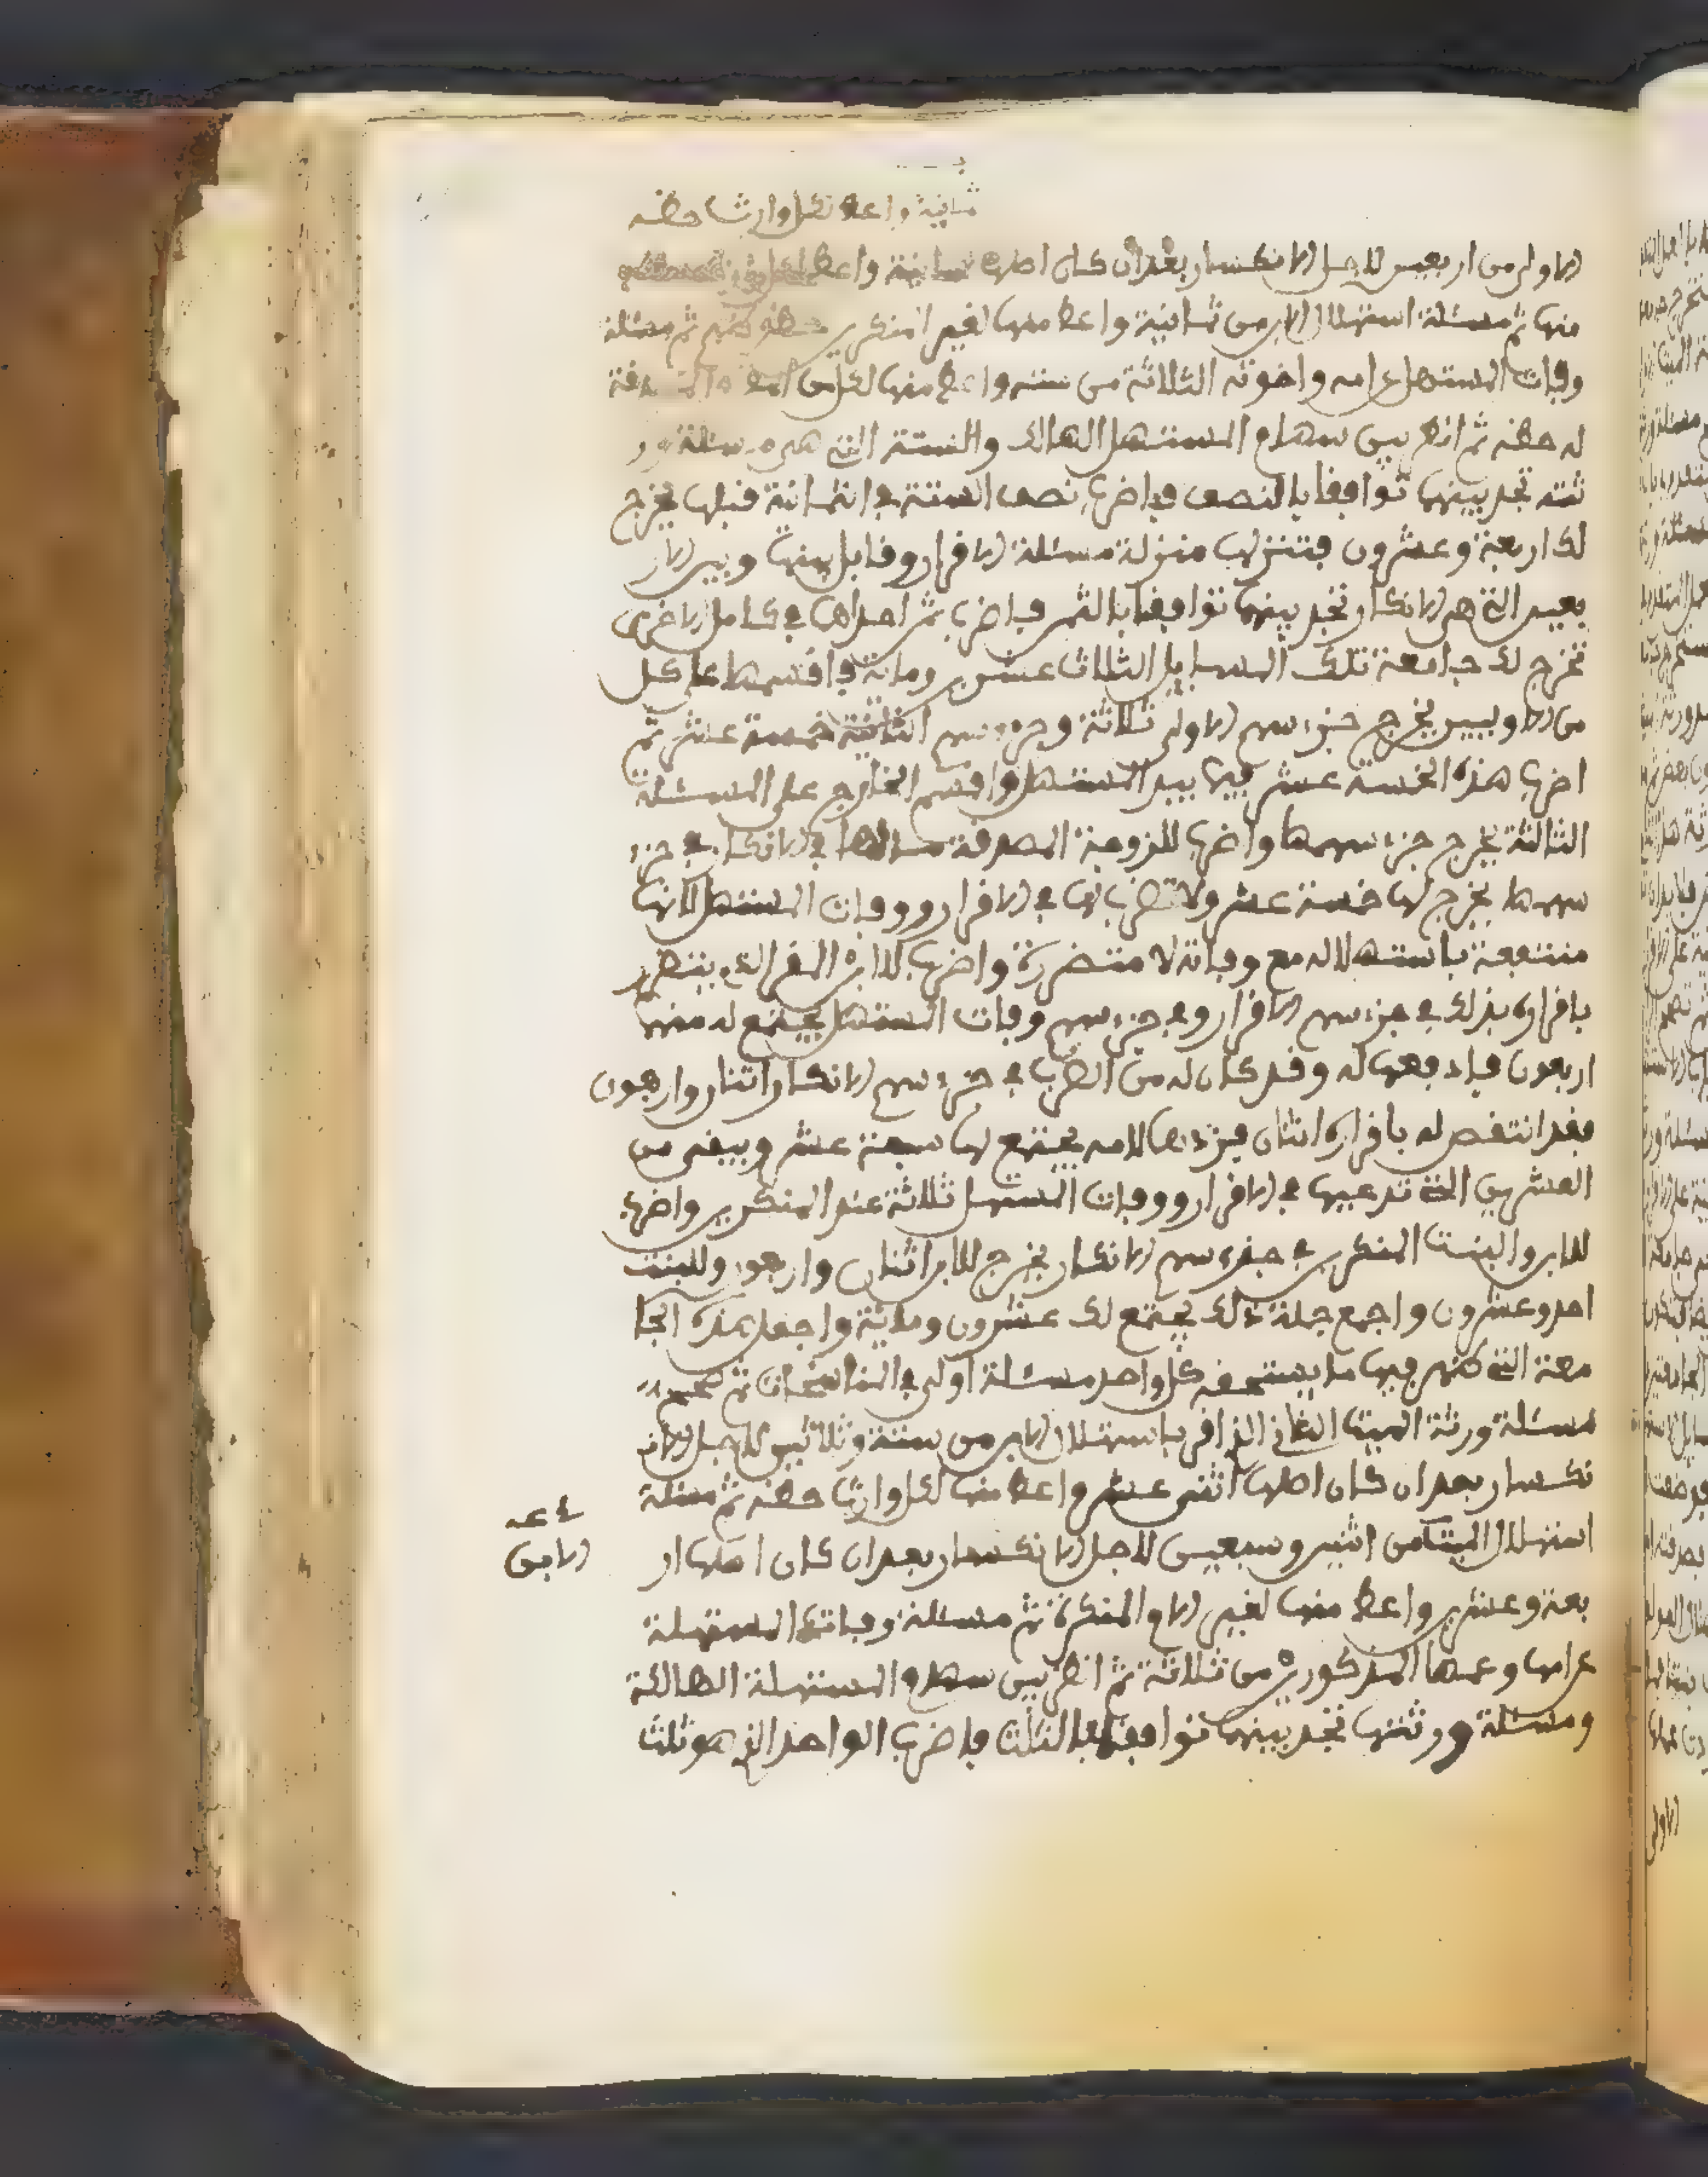 ثمانية واعط لكل وارث حظه
الاولى من اربعين لاجل الانكسار بعد ان كان اصلها ثمانية واعط لكل
منها ثم مسئلة استهلال الابن من ثمانية واعط منها لغير المنكرين حظه منهم ثم مسئلة
وفات المستهل عن امه واخوته الثلاثة من ستة واعط منها لكل من امه
له حظه ثم انظر بين سهام المستهل الهالك والستة التي هي مسئلة ور
ثته تجد بينهما توافقا بالنصف فاضرب نصف الستة في الثمانية قبلها يخرج
لك اربعة وعشرون فتنزلها منزلة مسئلة الاقرار وقابل بينها وبين الار
بعين التي هي الانكار تجد بينهما توافقا بالثمن فاضرب ثمن احداهما في كامل الاخرى
تخرج لك جامعة تلك المسايل الثلاث عشرين ومائة فاقسمها على كل
من الاوليين يخرج جزء سهم الاولى ثلاثة وجزء سهم الثانية خمسة عشر ثم
اضرب هذه الخمسة عشر فيما بيد المستهل واقسم الخارج على المسئلة
الثالثة يخرج جزء سهمها واضرب للزوجة المصدقة مالها في الانكار في جزء
سهمها يخرج لها خمسة عشر ولا تضرب لها في الاقرار ووفات المستهل لانها
منتفعة باستهلاله مع وفاته لا متضررة واضرب للابن المقر الذي يتضرر
باقراره بذلك في جزء سهم الاقرار وفي جزء سهم وفات المستهل يجتمع له منهما
اربعون فادفعها له وقد كان له من الضرب في جزء سهم الانكار اثنان واربعون
فقد انتقص له باقراره اثنان فزدهما لامه يجتمع لها سبعة عشر ويبقى من
العشرين التي تدعيها في الاقرار ووفات المستهل ثلاثة عند المنكرين واضرب
للابن والبنت المنكرين في جزء سهم الانكار يخرج للابن اثنان واربعون وللبنت
احد وعشرون واجمع جملة ذلك يجتمع لك عشرون ومائة واجعل هذه الجا
معة التي ظهر فيها ما يستحقه كل واحد مسئلة اولى في المناسخات ثم صحح
مسئلة ورثة الميت الثاني الذي اقر باستهلال الابن من ستة وثلاثين لاجل الا
نكسار بعد ان كان اصلها اثنى عشر واعط منها لكل وارث حظه ثم مسئلة
استهلال الميتة من اثنين وسبعين لاجل الانكسار بعد ان كان اصلها ار
بعة وعشرين واعط منها لغير الام المنكرة ثم مسئلة وفات المستهلة
عن امها وعمها المذكورين من ثلاثة ثم انظر بين سهام المستهلة الهالكة
ومسئلة ورثتها تجد بينهما توافقا بالثلث فاضرب الواحد الذي هو ثلث